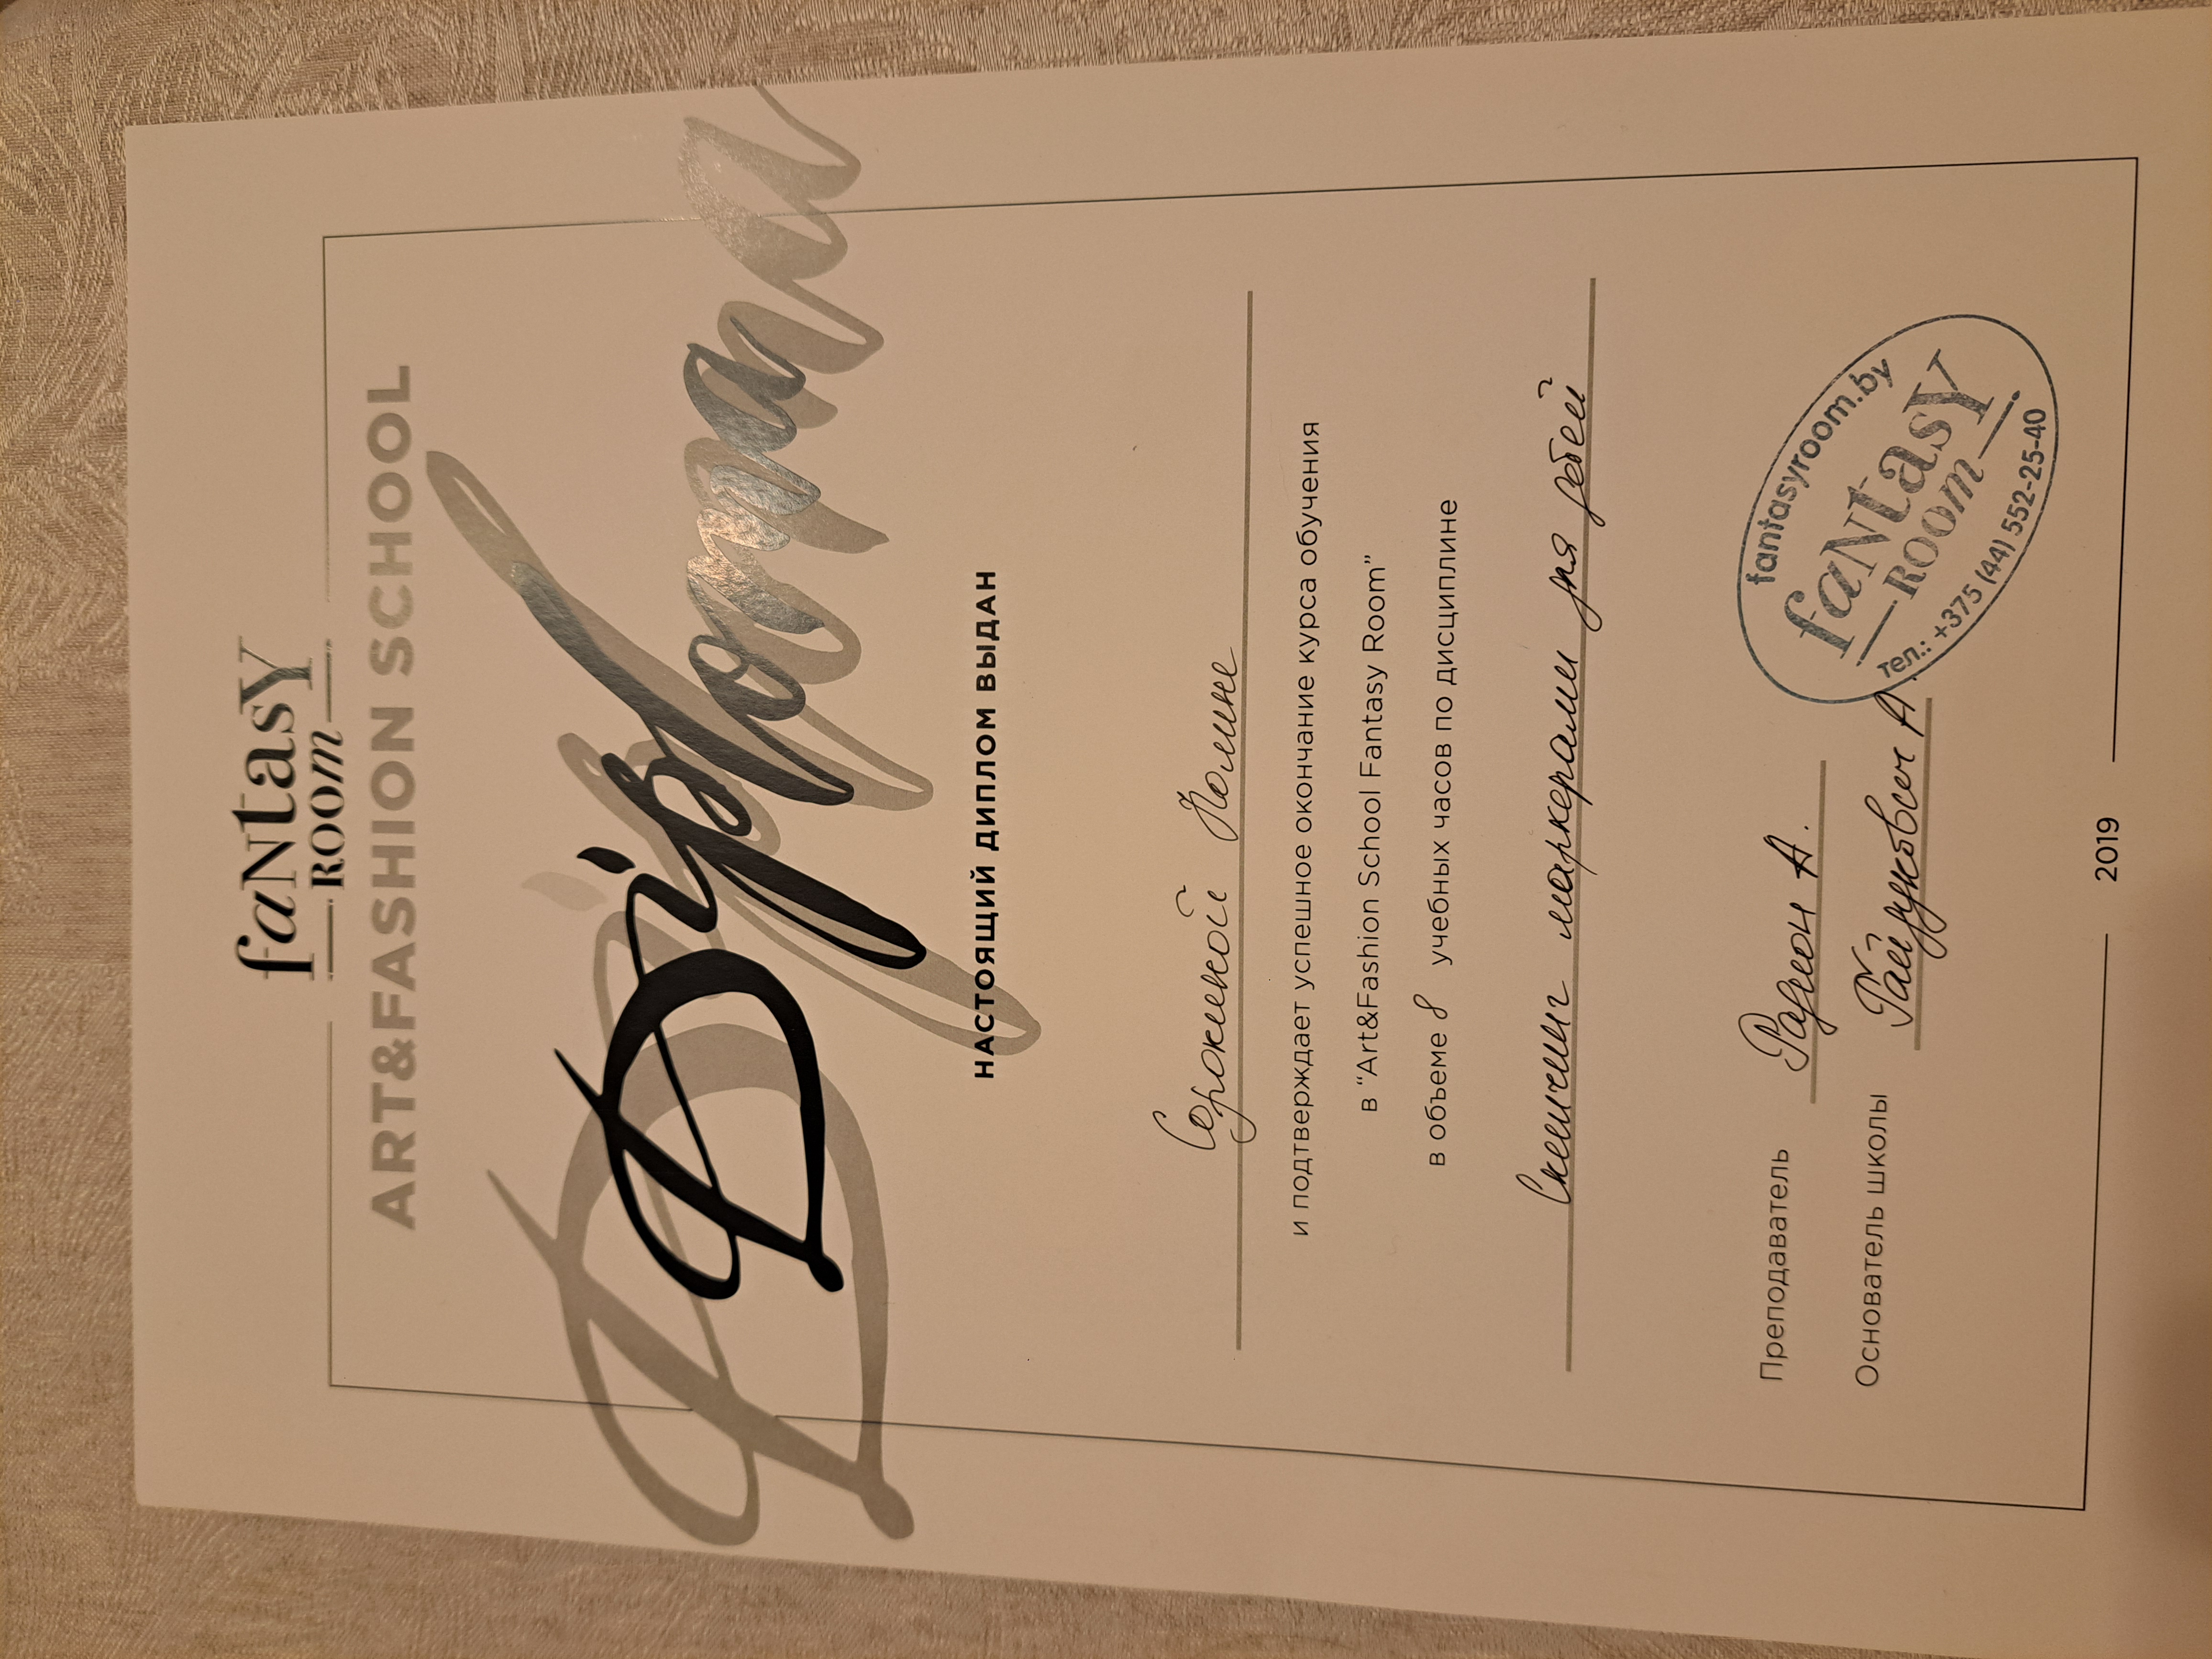 faNtasY
ROOm
ART&FASHION SCHOOL
Diploma
НАСТОЯЩИЙ ДИПЛОМ ВЫДАН
Сорокиной Полине
и подтверждает успешное окончание курса обучения
в “Art&Fashion School Fantasy Room”
в объеме 8 учебных часов по дисциплине
Скетчинг маркерами для детей
Преподаватель Радион А.
Основатель школы Гайдукович А.
fantasyroom.by
faNtasY
ROOm
тел.: +375 (44) 552-25-40
2019